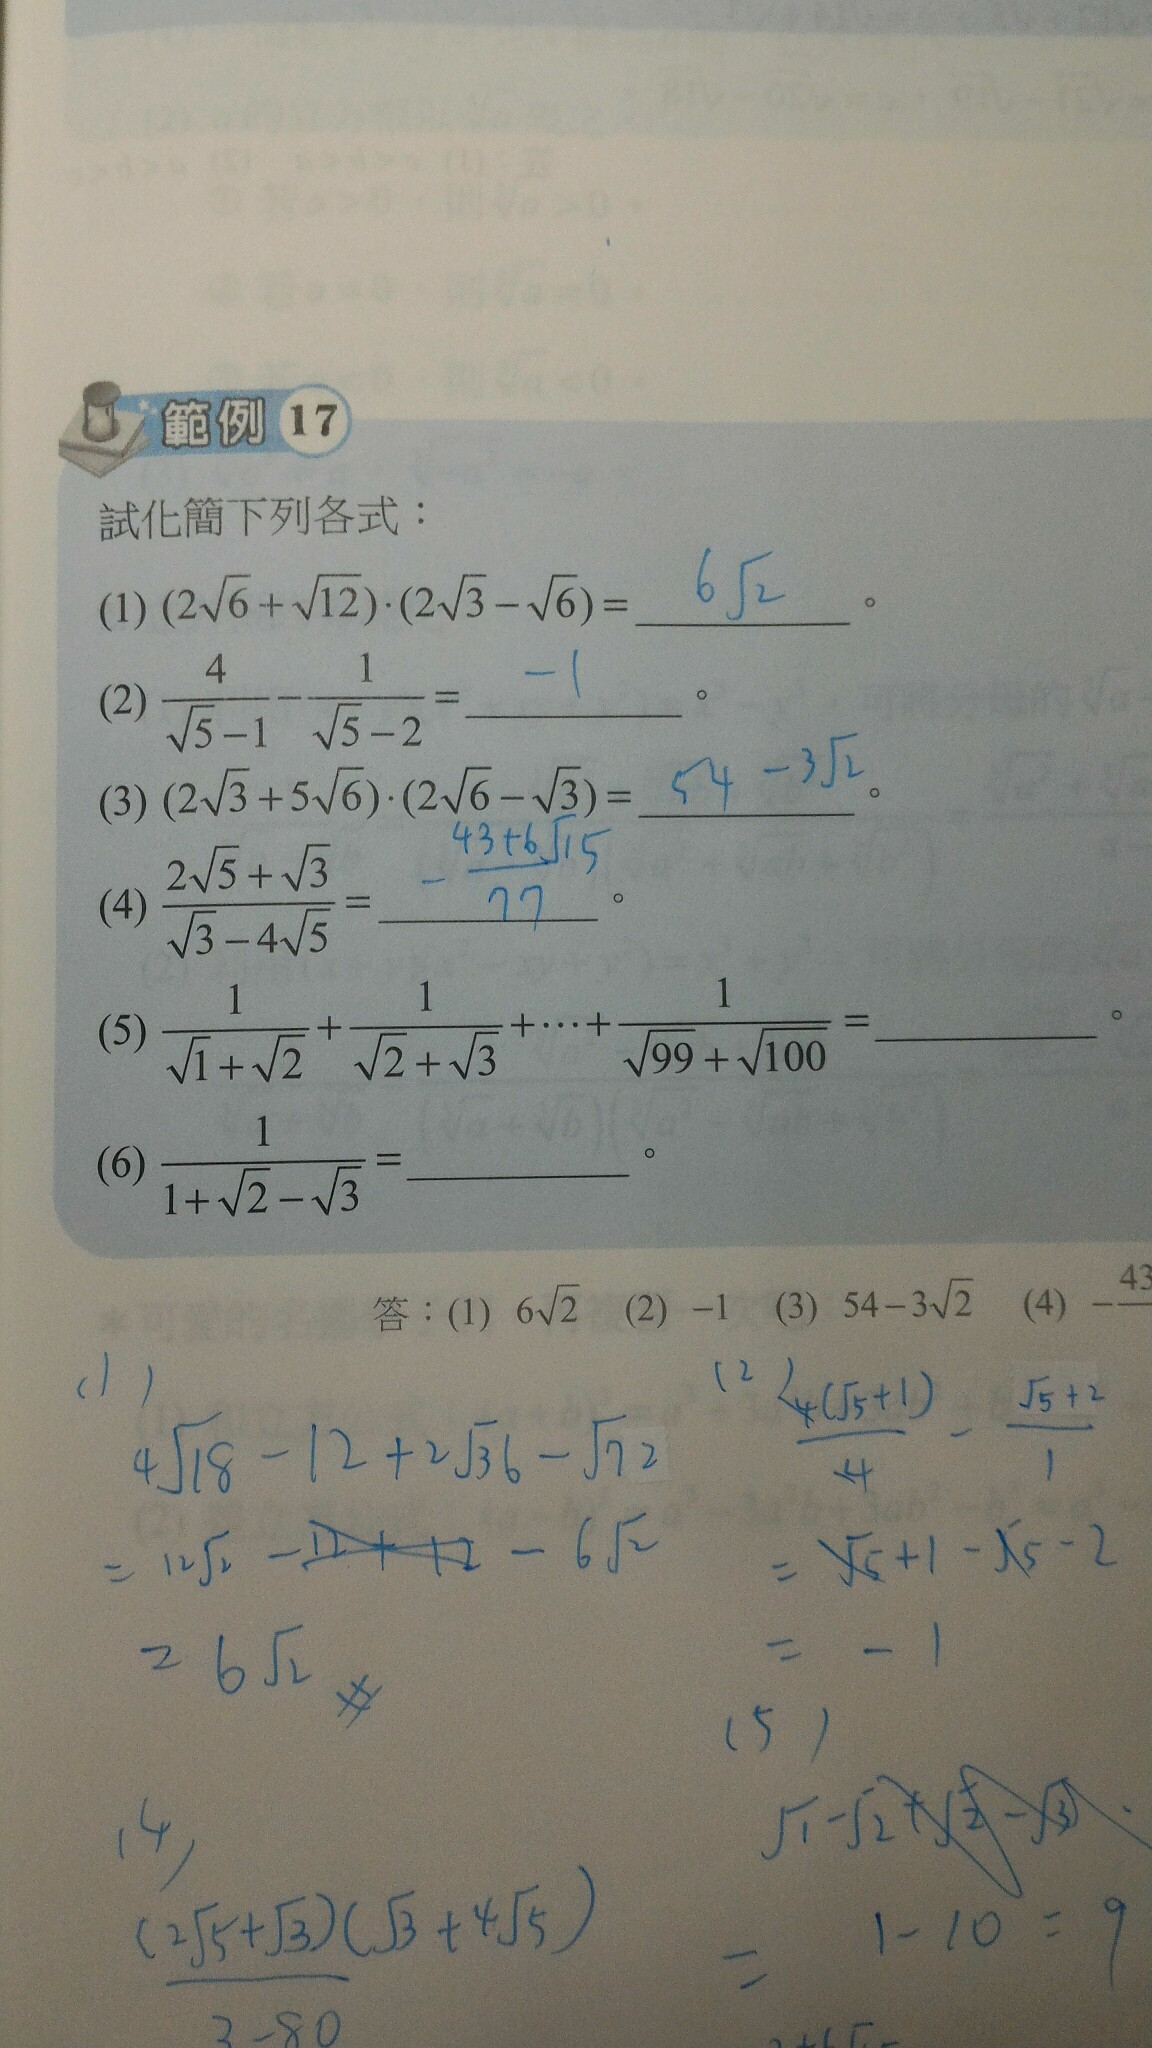 範例 17
試化簡下列各式：
(1) (2√6+√12)·(2√3−√6)= 6√2 。
(2) 4/(√5−1) − 1/(√5−2) = −1 。
(3) (2√3+5√6)·(2√6−√3)= 54 −3√2 。
(4) (2√5+√3)/(√3−4√5) = − (43+6√15)/77 。
(5) 1/(√1+√2) + 1/(√2+√3) +⋯+ 1/(√99+√100) = 。
(6) 1/(1+√2−√3) = 。
答：(1) 6√2 (2) −1 (3) 54−3√2 (4) −43
(1)
4√18 − 12 + 2√36 − √72
= 12√2 − 12 + 12 − 6√2
= 6√2
(2) 4(√5+1)/4 − (√5+2)/1
= √5+1−√5−2
= −1
(4)
(2√5+√3)(√3+4√5)
3−80
(5)
√1−√2+√2−√3
= 1−10 = 9